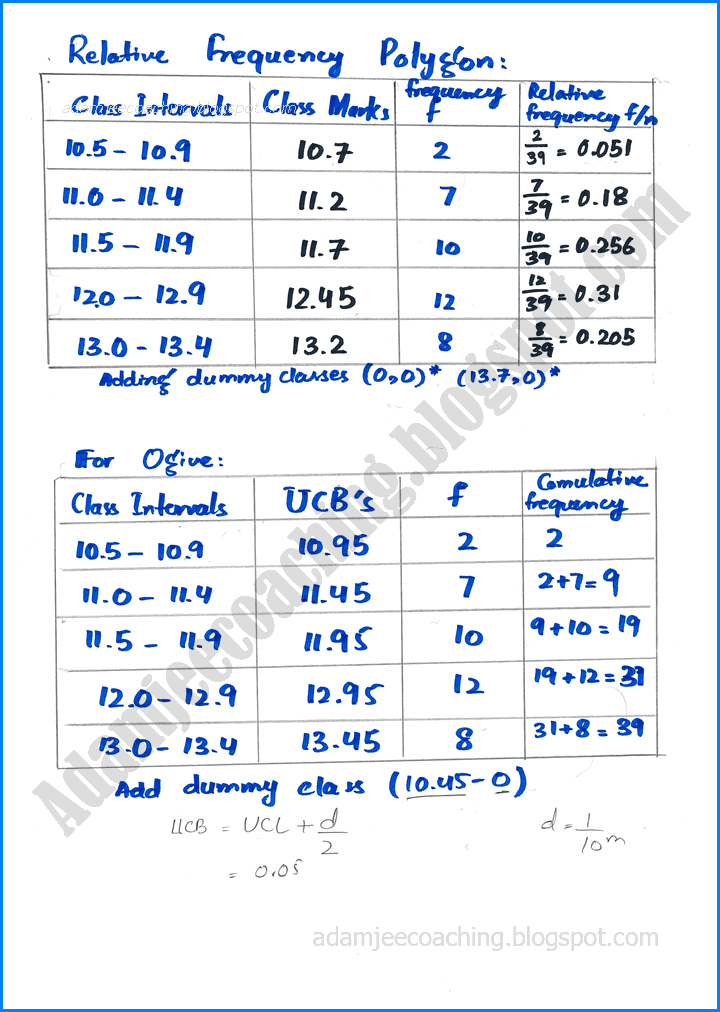 Relative Frequency Polygon:
adamjeecoaching.blogspot.com
Class Intervals Class Marks frequency f Relative frequency f/n
10.5 - 10.9 10.7 2 2/39 = 0.051
11.0 - 11.4 11.2 7 7/39 = 0.18
11.5 - 11.9 11.7 10 10/39 = 0.256
12.0 - 12.9 12.45 12 12/39 = 0.31
13.0 - 13.4 13.2 8 8/39 = 0.205
Adding dummy classes (0,0)* (13.7,0)*
For Ogive:
Class Intervals UCB's f Comulative frequency
10.5 - 10.9 10.95 2 2
11.0 - 11.4 11.45 7 2+7=9
11.5 - 11.9 11.95 10 9+10=19
12.0 - 12.9 12.95 12 19+12=31
13.0 - 13.4 13.45 8 31+8=39
Add dummy class (10.45-0)
UCB = UCL + d/2 d = 1/10^m
= 0.05
Adamjeecoaching.blogspot.com
adamjeecoaching.blogspot.com